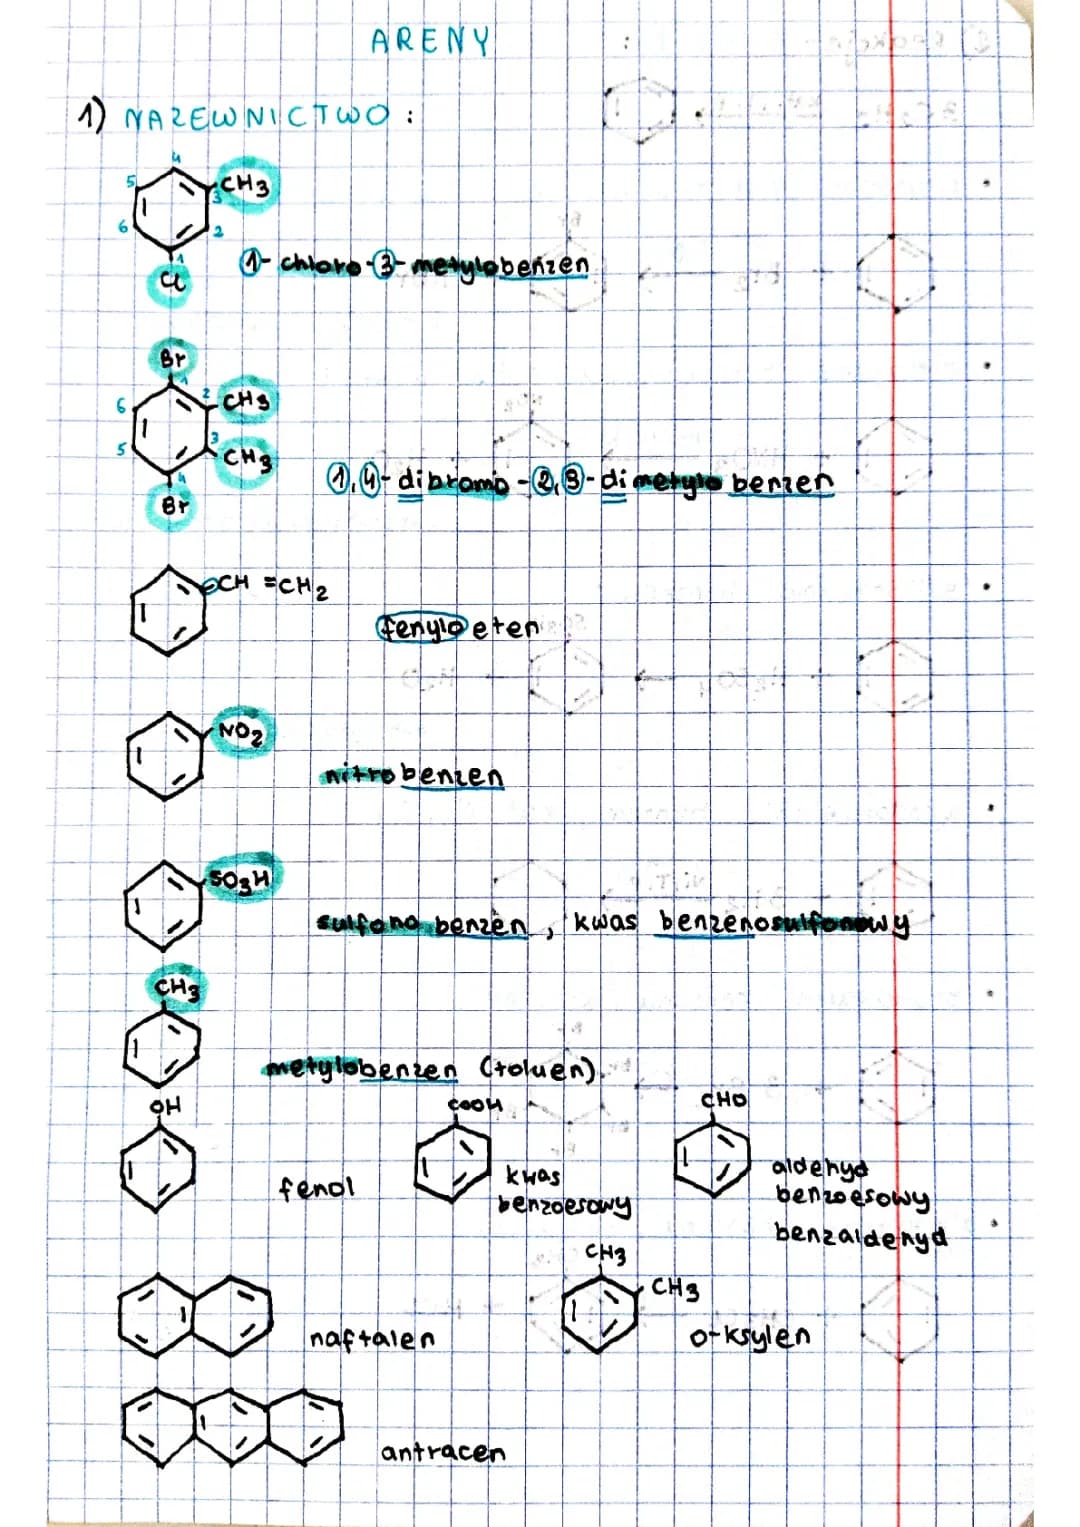 ARENY
1) NAZEWNICTWO :
4
5 CH3
3
6 2
1
Cl
1-chloro-3-metylobenzen
Br
1
6 2 CH3
5 3 CH3
4
Br
1,4-dibromo-2,3-dimetylo benzen
CH=CH2
fenyloeten
NO2
nitrobenzen
SO3H
sulfono benzen, kwas benzenosulfonowy
CH3
metylobenzen (toluen).
OH COOH CHO
fenol kwas benzoesowy aldehyd benzoesowy
benzaldehyd
CH3
CH3
naftalen o-ksylen
antracen